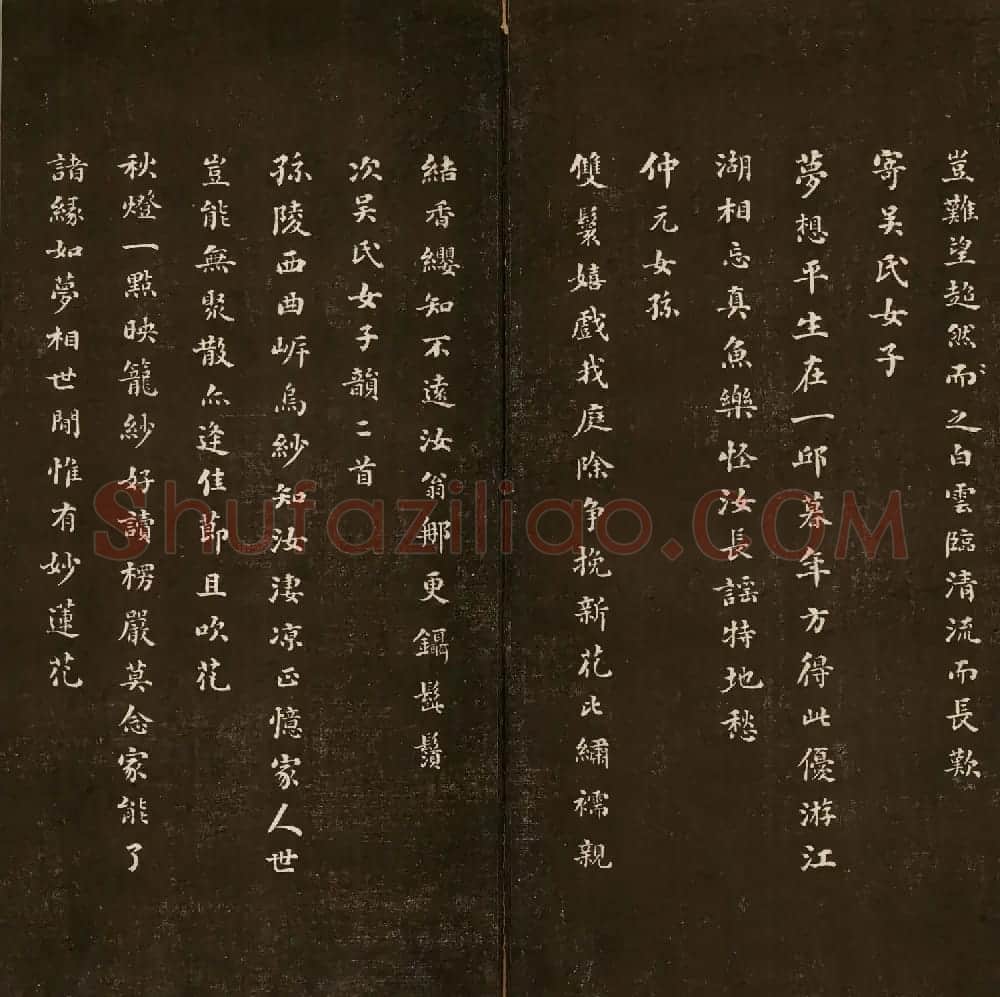 豈難望超然而之白雲臨清流而長歎
寄吳氏女子
夢想平生在一邱暮年方得此優游江
湖相忘真魚樂怪汝長謡特地愁
仲元女孫
雙鬟嬉戲我庭除争挽新花比繡襦親
結香纓知不遠汝翁那更鑷髭鬚
次吳氏女子韻二首
孫陵西曲岓烏紗知汝淒凉正憶家人世
豈能無聚散亦逢佳節且吹花
秋燈一點映籠紗好讀楞嚴莫念家能了
諸緣如夢相世間惟有妙蓮花
Shufaziliao.COM